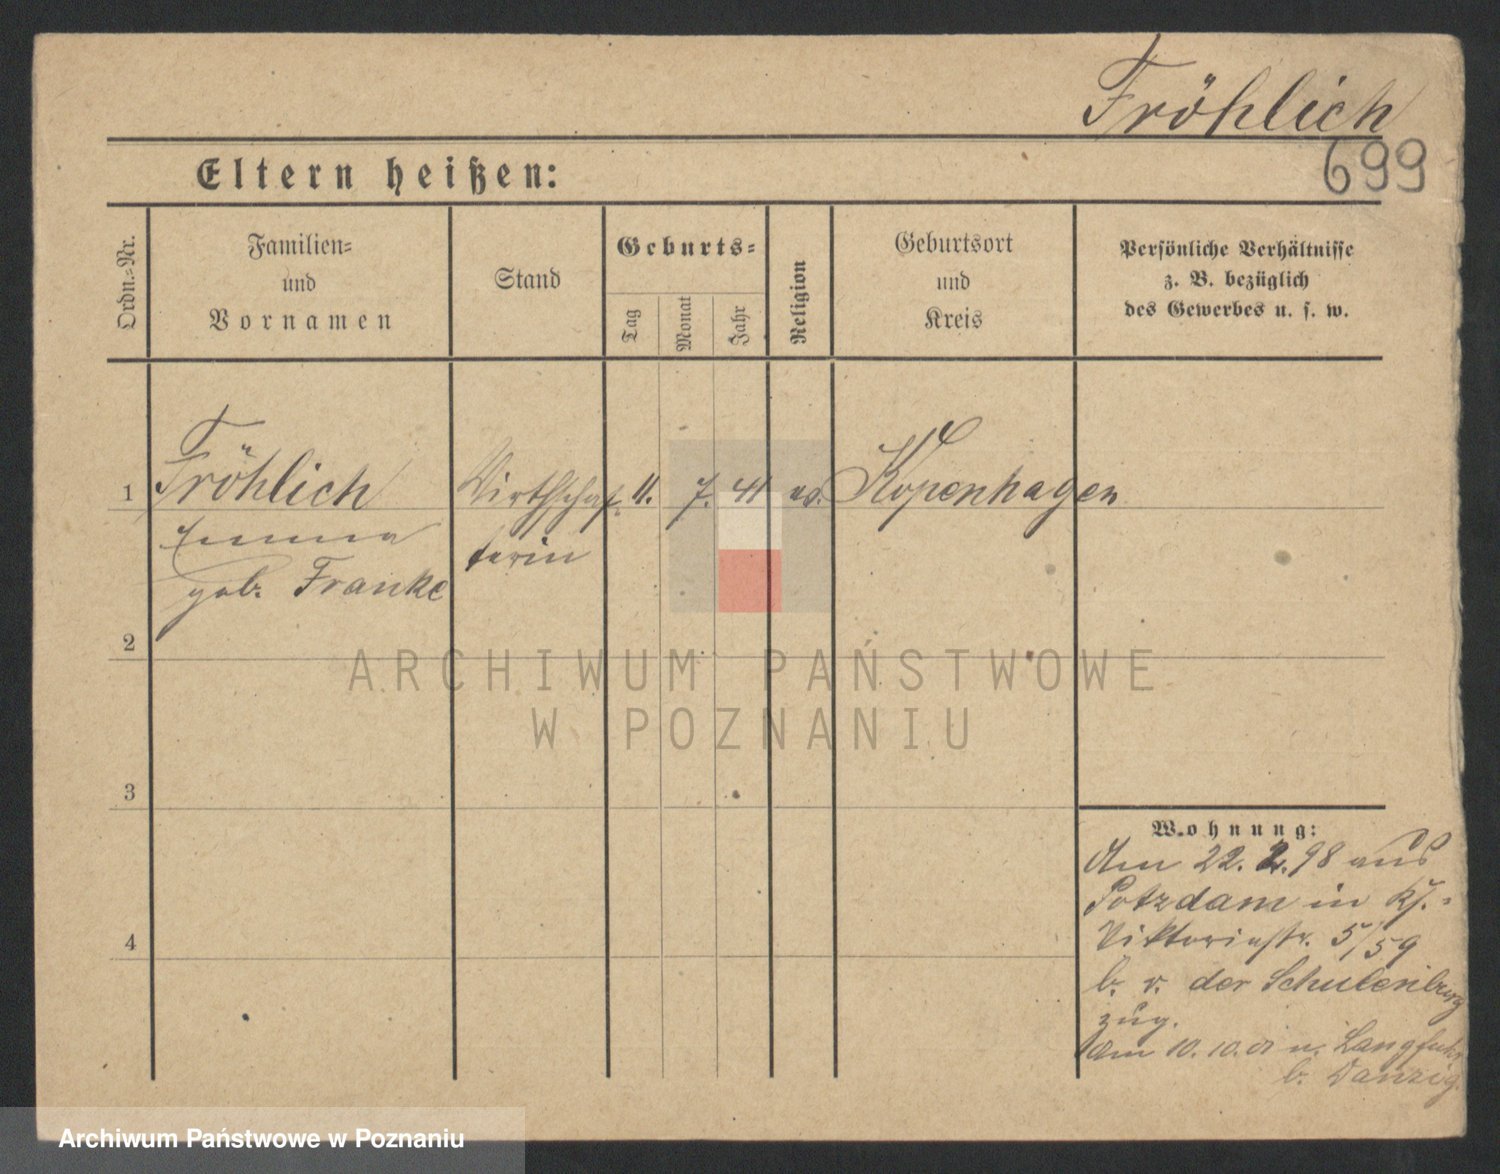 Fröhlich
699
Eltern heißen:
Ordn.=Nr.
Familien=
und
Vornamen
Stand
Geburts=
Tag
Monat
Jahr
Religion
Geburtsort
und
Kreis
Persönliche Verhältnisse
z. B. bezüglich
des Gewerbes u. s. w.
1
Fröhlich
Emma
geb. Franke
Wirthschaf
terin
11.
7.
41
ev.
Kopenhagen
2
3
4
ARCHIWUM PAŃSTWOWE
W POZNANIU
Wohnung:
Am 22.2.98 aus
Potzdam in
Viktoriastr. 5/59
b. v. der Schulenburg
zug.
Am 10.10.01 n. Langfuhr
b. Danzig
Archiwum Państwowe w Poznaniu